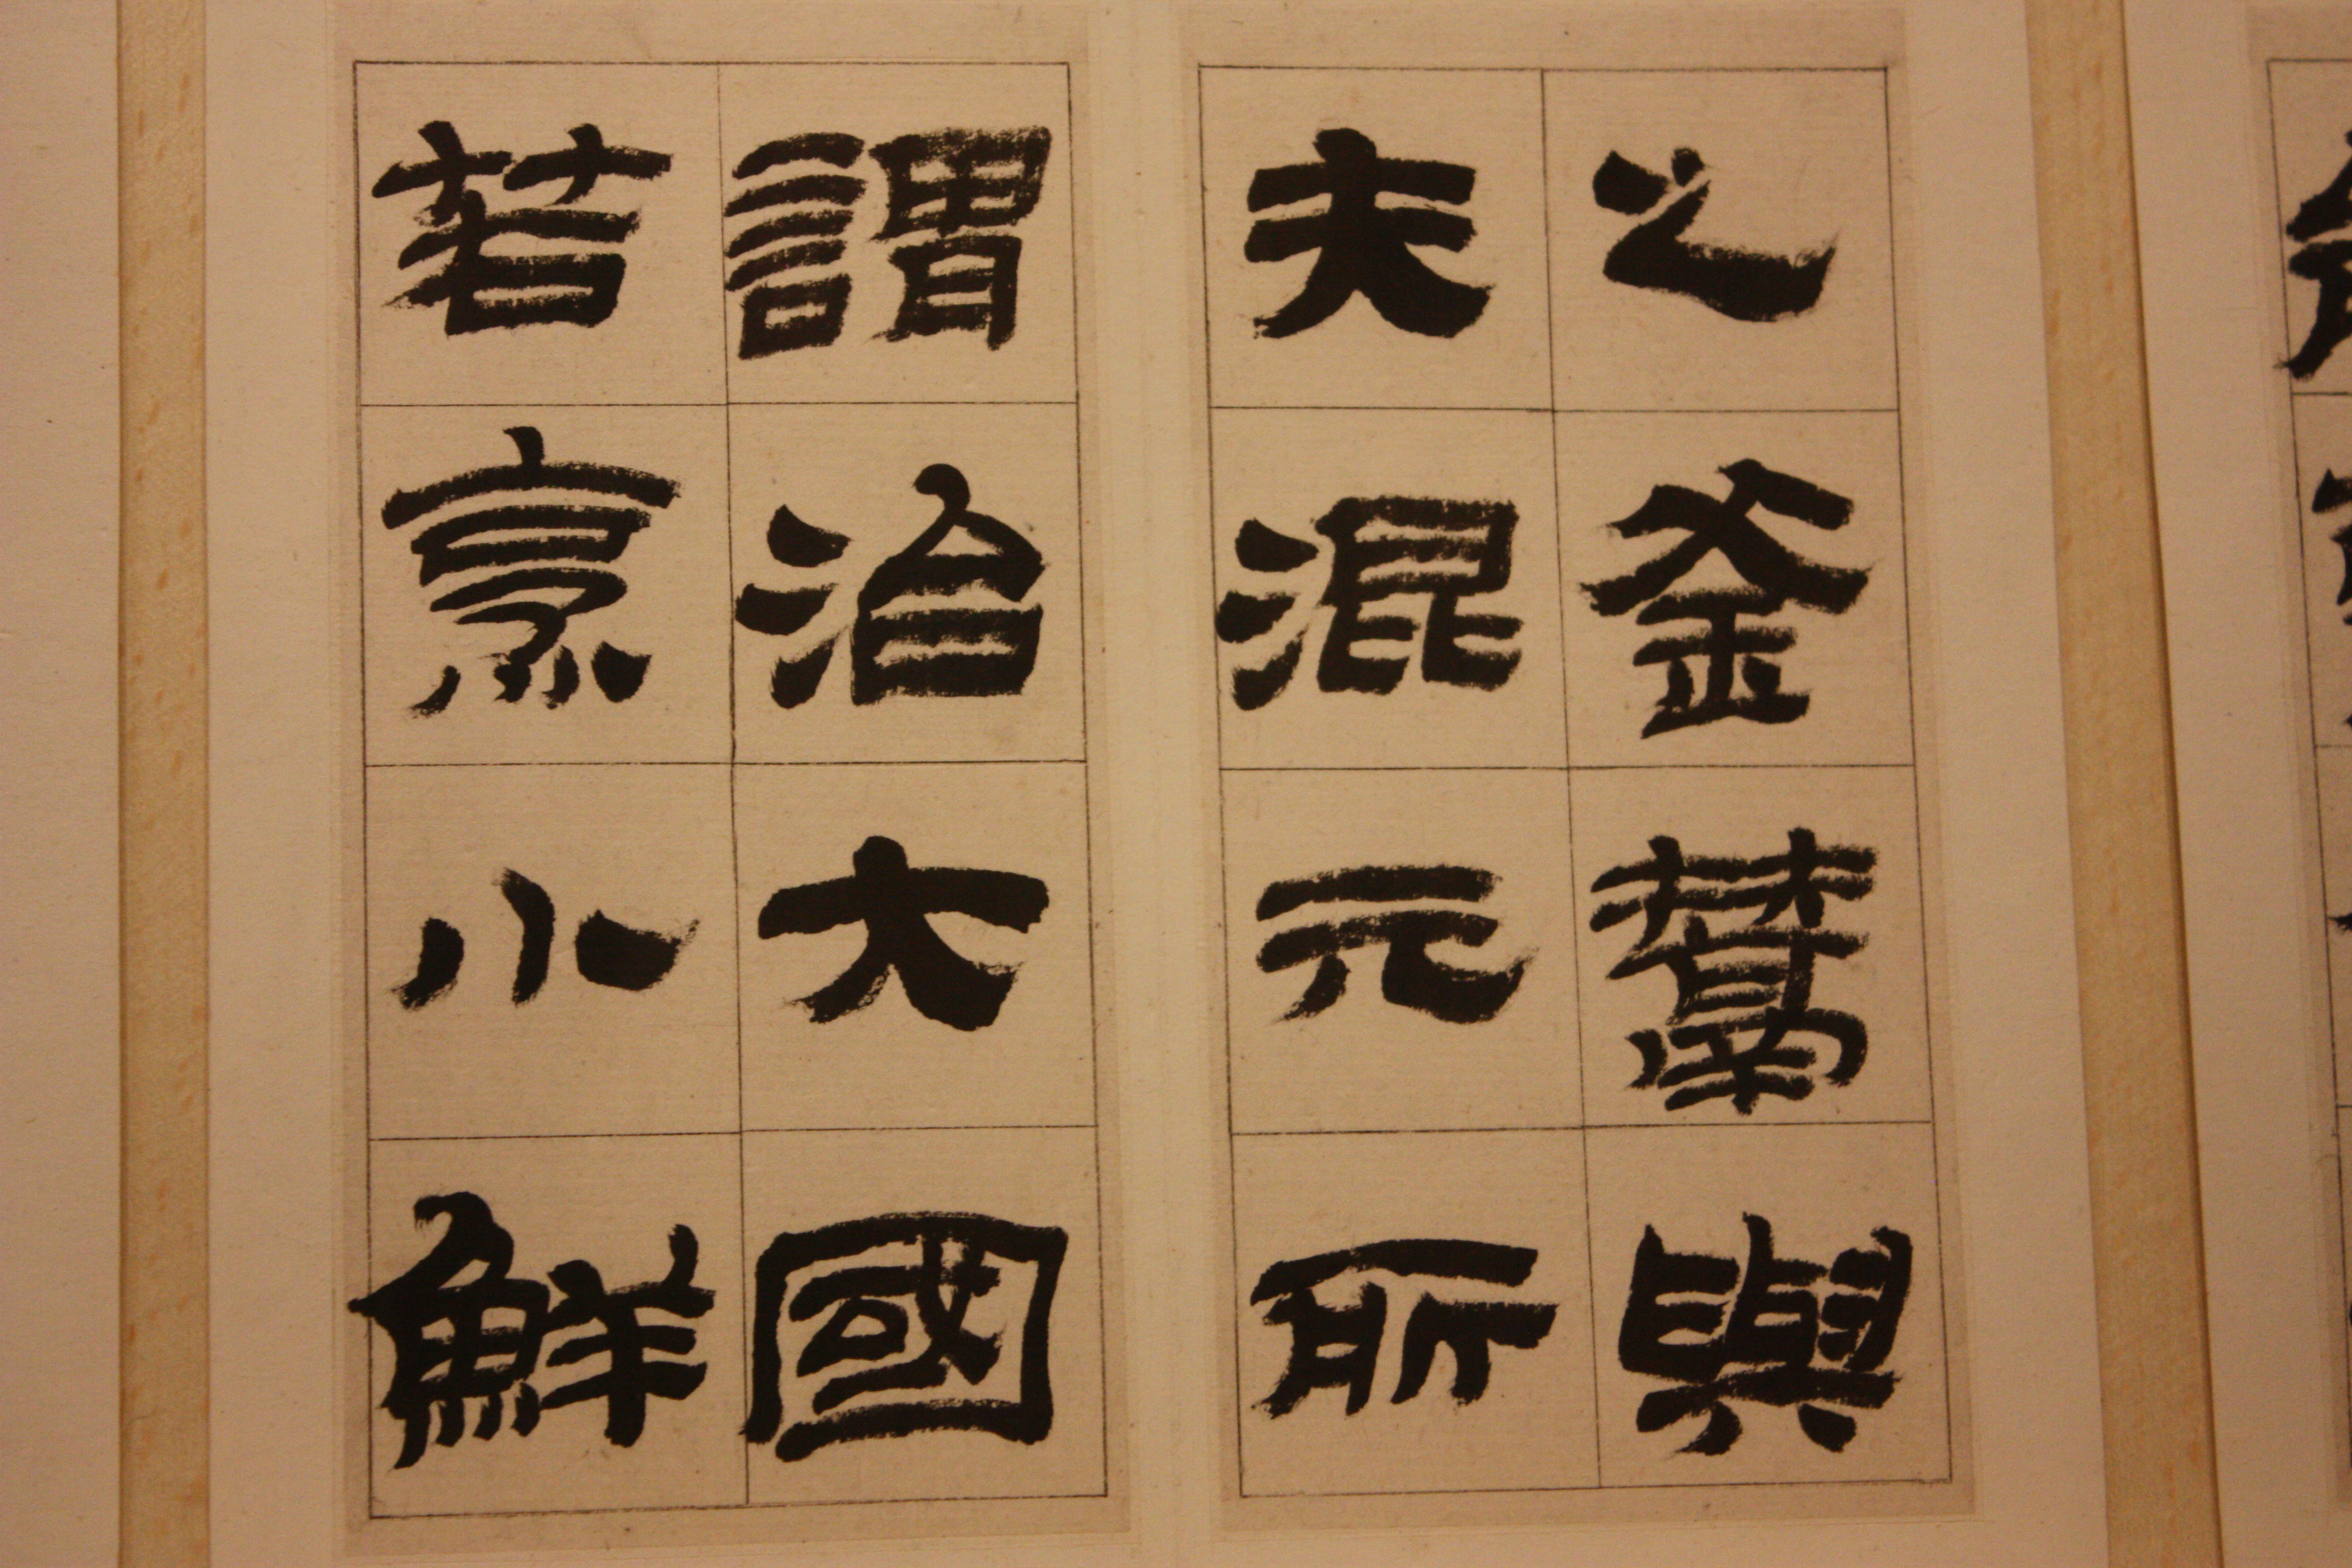 之釜鬵與
夫混元所
謂治大國
若烹小鮮